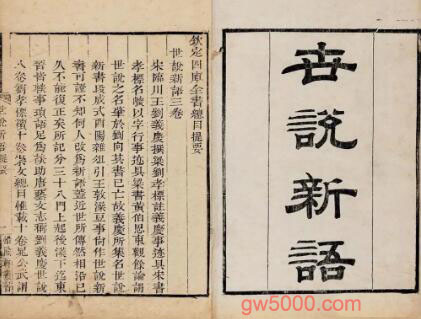 世說新語
欽定四庫全書總目提要
世說新語三卷
宋臨川王劉義慶撰梁劉孝標注義慶事迹具宋書
孝標名峻以字行事迹具梁書黃伯思東觀餘論謂
世說之名肇於劉向其書已亡故義慶所集名世說
新書段成式酉陽雜俎引王敦澡豆事尚作世說新
書可證不知何人改為新語蓋近世所傳然相沿已
久不能復正矣所記分三十八門上起後漢下迄東
晉皆軼事瑣語足為談助唐藝文志稱劉義慶世說
八卷劉孝標續十卷崇文總目惟載十卷晁公武謂
gw5000.com